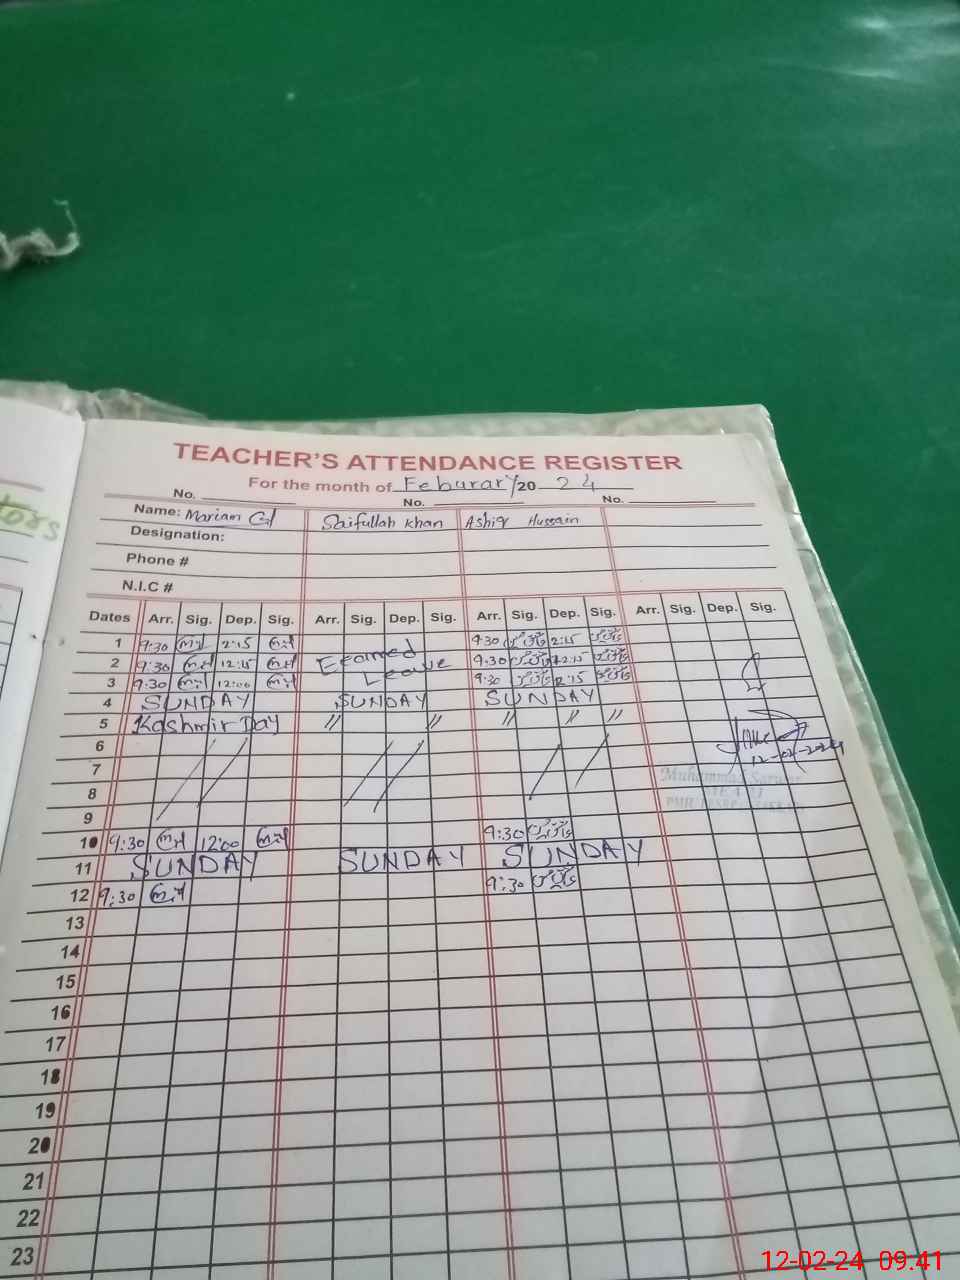 TEACHER'S ATTENDANCE REGISTER
For the month of Feburary 2024
No. No. No.
Name: Mariam Saifullah Khan Ashiq Hussain
Designation:
Phone #
N.I.C #
Dates Arr. Sig. Dep. Sig. Arr. Sig. Dep. Sig. Arr. Sig. Dep. Sig. Arr. Sig. Dep. Sig.
1 9:30 2:15 Earned 9:30 2:15
2 9:30 12:15 Leave 9:30 12:15
3 9:30 12:00 9:30 2:15
4 SUNDAY SUNDAY SUNDAY
5 Kashmir Day // // // // //
6
7 12-02-2024
8 Muhammad Sarwar
9
10 9:30 12:00 9:30
11 SUNDAY SUNDAY SUNDAY
12 9:30 9:30
13
14
15
16
17
18
19
20
21
22
23
12-02-24 09.41